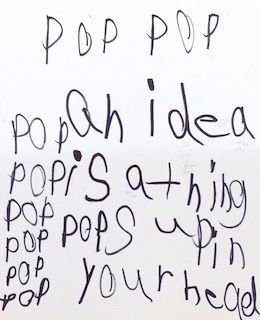 POP POP
POP an idea
POP is a thing
POP
POP POPS up in
POP
POP your head